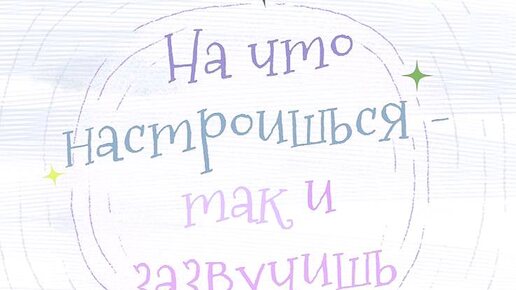 На что
настроишься -
так и
зазвучишь